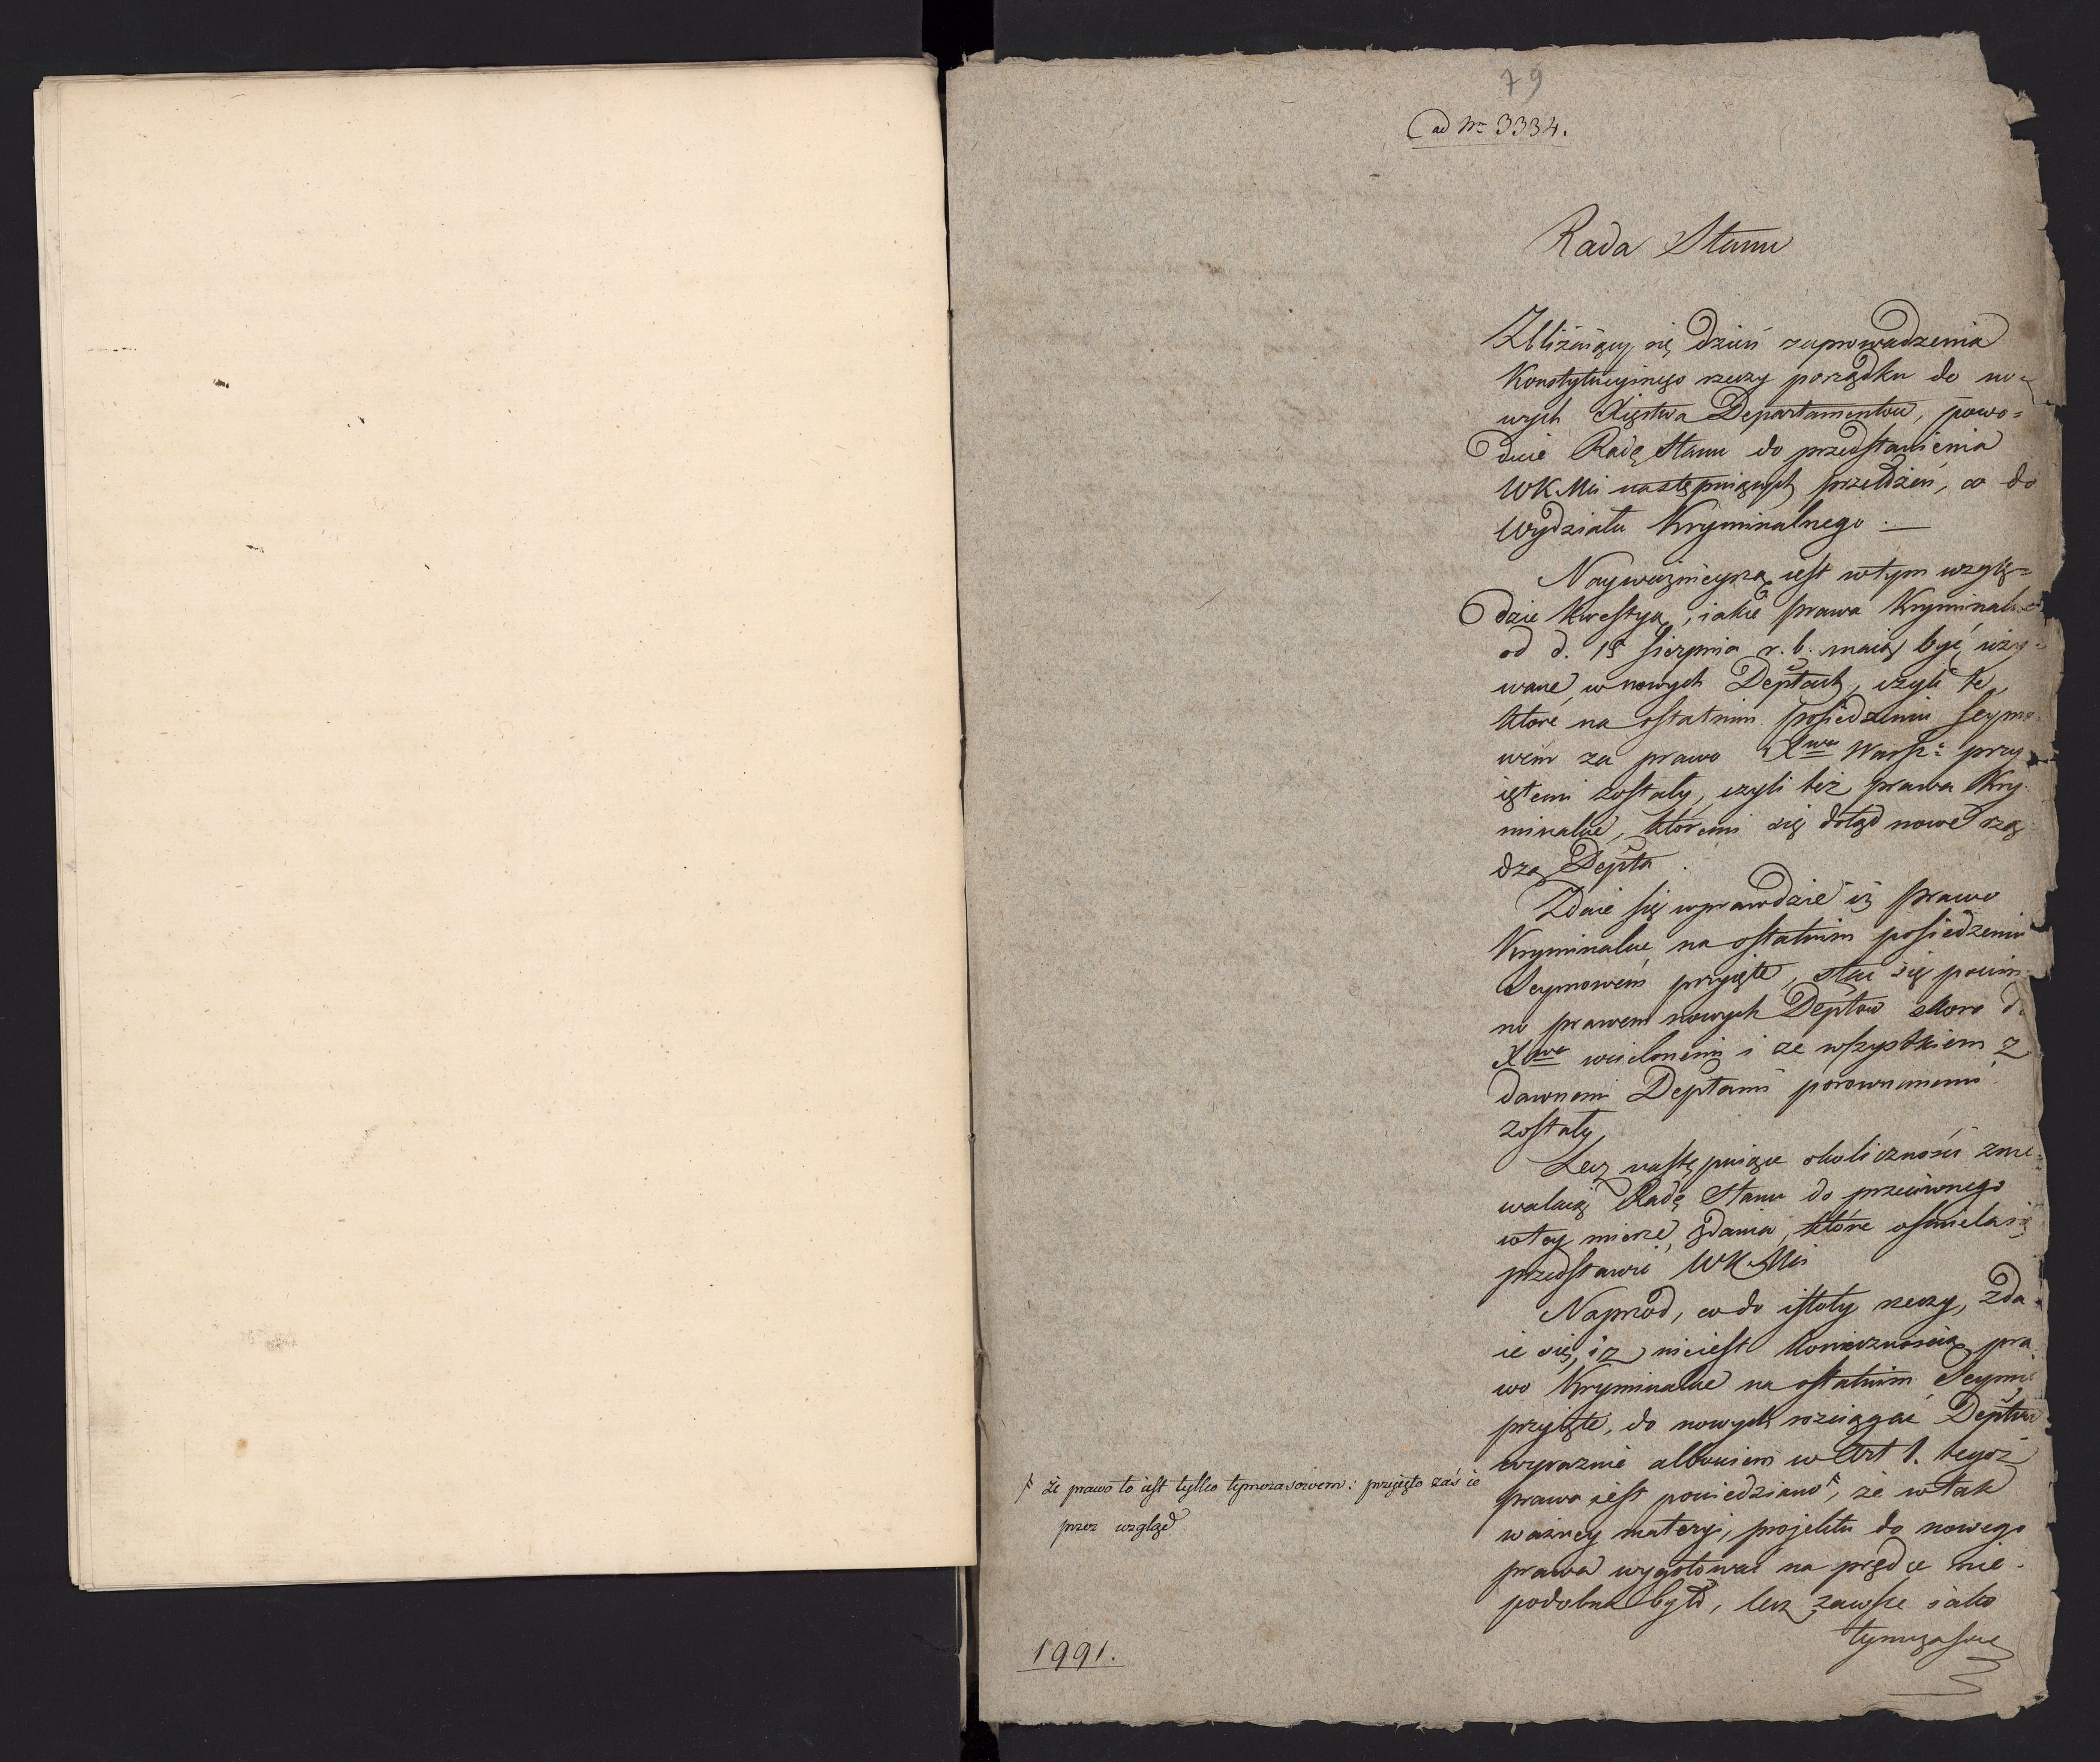 79
ad Nrm 3334.
Rada Stanu
Zbliżaiący się dzień zaprowadzenia
Konstytucyinego rzeczy porządku do no=
wych Xięstwa Departamentów, powo=
duie Radę Stanu do przedstawienia
WKMci następuiących przełożeń, co do
Wydziału Kryminalnego. —
Nayważnieyszą iest w tym wzglę=
dzie kwestyą, iakie prawa Kryminalne
od d. 15 Sierpnia r. b. maią być uży=
wane w nowych Deptach, czyli te,
które na ostatnim posiedzeniu Seymo
wém za prawo Xtwa Warsz: przy
iętemi zostały, czyli też prawa Kry
minalne, któremi się dotąd nowe rzą
dzą Depta.
Zdaie się wprawdzie iż prawo
Kryminalne na ostatnim posiedzeniu
Seymowém przyięte, stać się powin
no prawem nowych Deptów skoro do
Xtwa wcielonemi i ze wszystkiem z
dawnemi Deptami porownanemi
zostały,
Lecz następuiące okoliczności znie
walaią Radę Stanu do przeciwnego
w tey mierze zdania, które ośmiela się
przedstawić WKMci
Naprzód, co do istoty rzeczy, zda
ie się, iż nieiest koniecznością pra
wo Kryminalne na ostatnim Seymie
przyięte, do nowych rozciągać Deptów
wyraznie albowiem w Art 1. tegoż
prawa iest powiedziano ⸸, że w tak
ważney materyi, projektu do nowego
prawa wygotować na prędce nie
podobna było, lecz zawsze iako
tymczasowe
⸸ że prawo to iest tylko tymczasowem: przyięto zaś ie
przez wzgląd
1991.